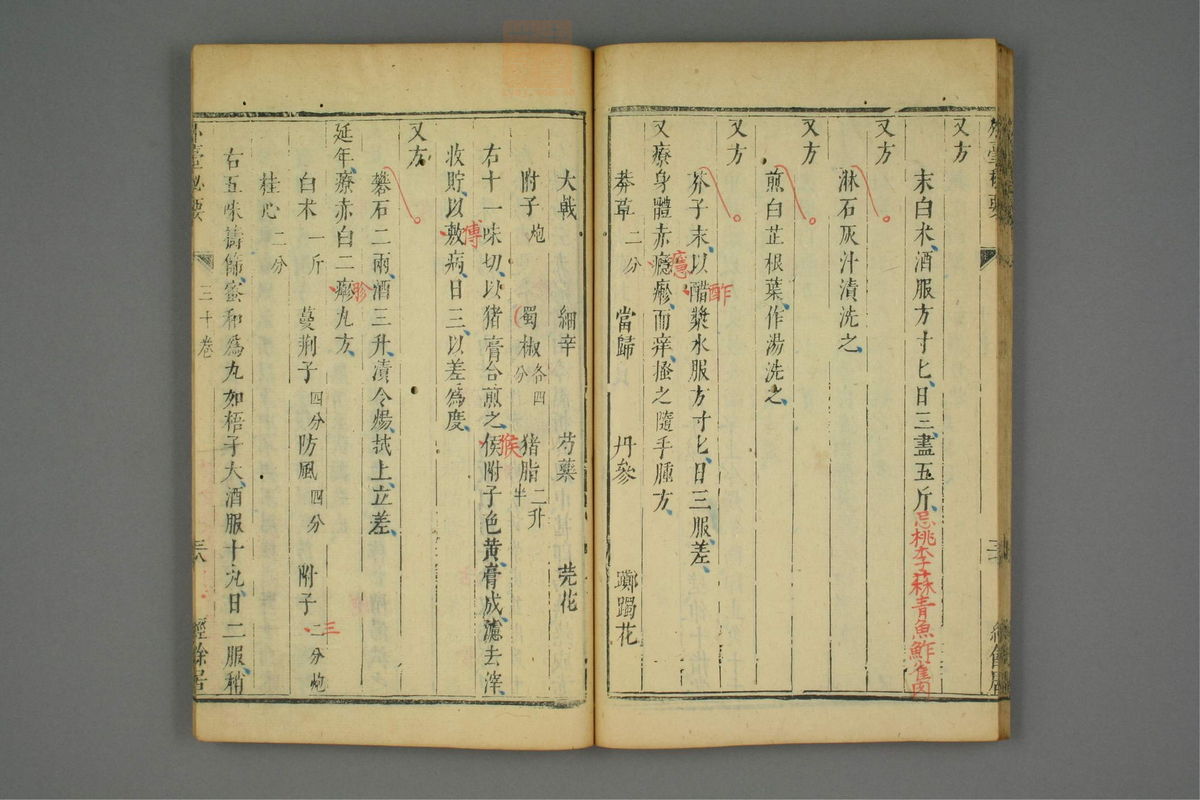 又方
末白朮酒服方寸匕日三盡五斤忌桃李蒜青魚鮓雀肉
又方
淋石灰汁漬洗之
又方
煎白芷根葉作湯洗之
又方
芥子末以醋漿水服方寸匕日三服差
酢
又療身體赤癮瘮而痒搔之隨手腫方
癮
莽草二分 當歸 丹參 躑躅花
大戟 細辛 芍藥 芫花
附子炮 蜀椒各四分 猪脂二升半
右十一味切以猪膏合煎之侯附子色黃膏成濾去滓
候
收貯以敷病日三以差爲度
傅
又方
礬石二兩酒三升漬令煬拭上立差
延年療赤白二瘮九方
胗
白朮一斤 蔓荆子四分 防風四分 附子二分炮
三
桂心二分
右五味擣篩蜜和爲丸如梧子大酒服十丸日二服稍
外臺祕要 三十卷 三八 經餘居